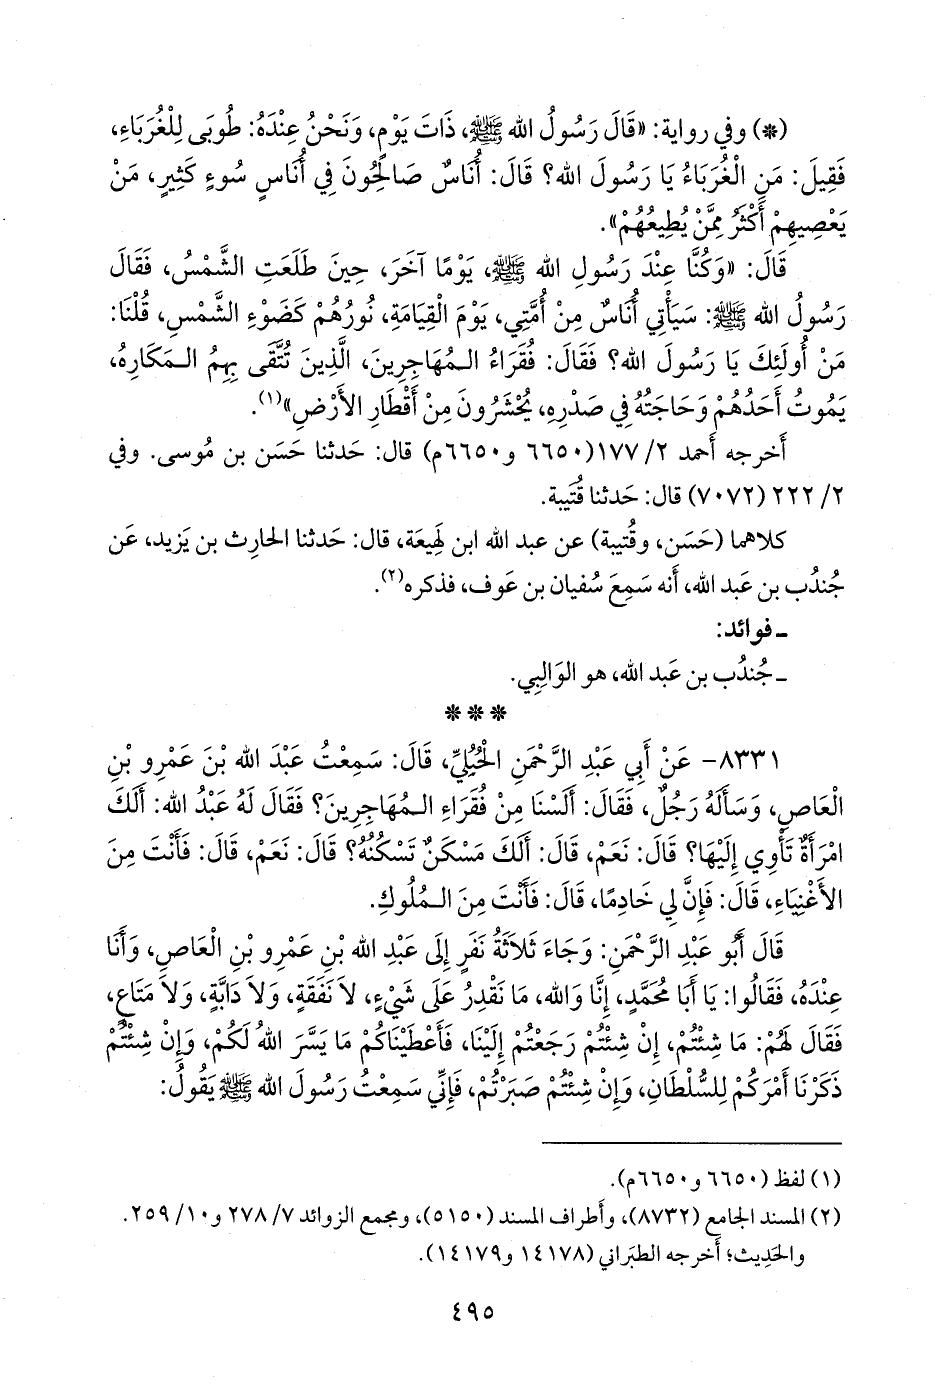 (*) وفي رواية: «قَالَ رَسُولُ الله ﷺ، ذَاتَ يَوْمٍ، وَنَحْنُ عِنْدَهُ: طُوبَى لِلْغُرَبَاءِ،
فَقِيلَ: مَنِ الْغُرَبَاءُ يَا رَسُولَ الله؟ قَالَ: أُنَاسٌ صَالِحُونَ فِي أُنَاسِ سُوءٍ كَثِيرٍ، مَنْ
يَعْصِيهِمْ أَكْثَرُ مِمَّنْ يُطِيعُهُمْ».
قَالَ: «وَكُنَّا عِنْدَ رَسُولِ الله ﷺ، يَوْمًا آخَرَ، حِينَ طَلَعَتِ الشَّمْسُ، فَقَالَ
رَسُولُ الله ﷺ: سَيَأْتِي أُنَاسٌ مِنْ أُمَّتِي، يَوْمَ الْقِيَامَةِ، نُورُهُمْ كَضَوْءِ الشَّمْسِ، قُلْنَا:
مَنْ أُولَئِكَ يَا رَسُولَ الله؟ فَقَالَ: فُقَرَاءُ الـمُهَاجِرِينَ، الَّذِينَ تُتَّقَى بِهِمُ الـمَكَارِهُ،
يَمُوتُ أَحَدُهُمْ وَحَاجَتُهُ فِي صَدْرِهِ، يُحْشَرُونَ مِنْ أَقْطَارِ الأَرْضِ»(١).
أخرجه أحمد ٢/ ١٧٧(٦٦٥٠ و٦٦٥٠م) قال: حَدثنا حَسَن بن مُوسى. وفي
٢/ ٢٢٢ (٧٠٧٢) قال: حَدثنا قُتَيبة.
كلاهما (حَسَن، وقُتيبة) عن عبد الله ابن لَهِيعَة، قال: حَدثنا الحارِث بن يَزيد، عَن
جُندُب بن عَبد الله، أَنه سَمِعَ سُفيان بن عَوف، فذكره(٢).
ـ فوائد:
ـ جُندُب بن عَبد الله، هو الوَالِبِي.
* * *
٨٣٣١- عَنْ أَبِي عَبْدِ الرَّحْمَنِ الْحُبُلِيِّ، قَالَ: سَمِعْتُ عَبْدَ الله بْنَ عَمْرِو بْنِ
الْعَاصِ، وَسَأَلَهُ رَجُلٌ، فَقَالَ: أَلَسْنَا مِنْ فُقَرَاءِ الـمُهَاجِرِينَ؟ فَقَالَ لَهُ عَبْدُ الله: أَلَكَ
امْرَأَةٌ تَأْوِي إِلَيْهَا؟ قَالَ: نَعَمْ، قَالَ: أَلَكَ مَسْكَنٌ تَسْكُنُهُ؟ قَالَ: نَعَمْ، قَالَ: فَأَنْتَ مِنَ
الأَغْنِيَاءِ، قَالَ: فَإِنَّ لِي خَادِمًا، قَالَ: فَأَنْتَ مِنَ الـمُلُوكِ.
قَالَ أَبُو عَبْدِ الرَّحْمَنِ: وَجَاءَ ثَلاَثَةُ نَفَرٍ إِلَى عَبْدِ الله بْنِ عَمْرِو بْنِ الْعَاصِ، وَأَنَا
عِنْدَهُ، فَقَالُوا: يَا أَبَا مُحَمَّدٍ، إِنَّا وَالله، مَا نَقْدِرُ عَلَى شَيْءٍ، لاَ نَفَقَةٍ، وَلاَ دَابَّةٍ، وَلاَ مَتَاعٍ،
فَقَالَ لَهُمْ: مَا شِئْتُمْ، إِنْ شِئْتُمْ رَجَعْتُمْ إِلَيْنَا، فَأَعْطَيْنَاكُمْ مَا يَسَّرَ اللهُ لَكُمْ، وَإِنْ شِئْتُمْ
ذَكَرْنَا أَمْرَكُمْ لِلسُّلْطَانِ، وَإِنْ شِئْتُمْ صَبَرْتُمْ، فَإِنِّي سَمِعْتُ رَسُولَ الله ﷺ يَقُولُ:
(١) لفظ (٦٦٥٠ و٦٦٥٠م).
(٢) المسند الجامع (٨٧٣٢)، وأطراف المسند (٥١٥٠)، ومجمع الزوائد ٧/ ٢٧٨ و١٠/ ٢٥٩.
والحَدِيث؛ أخرجه الطبَراني (١٤١٧٨ و١٤١٧٩).
٤٩٥